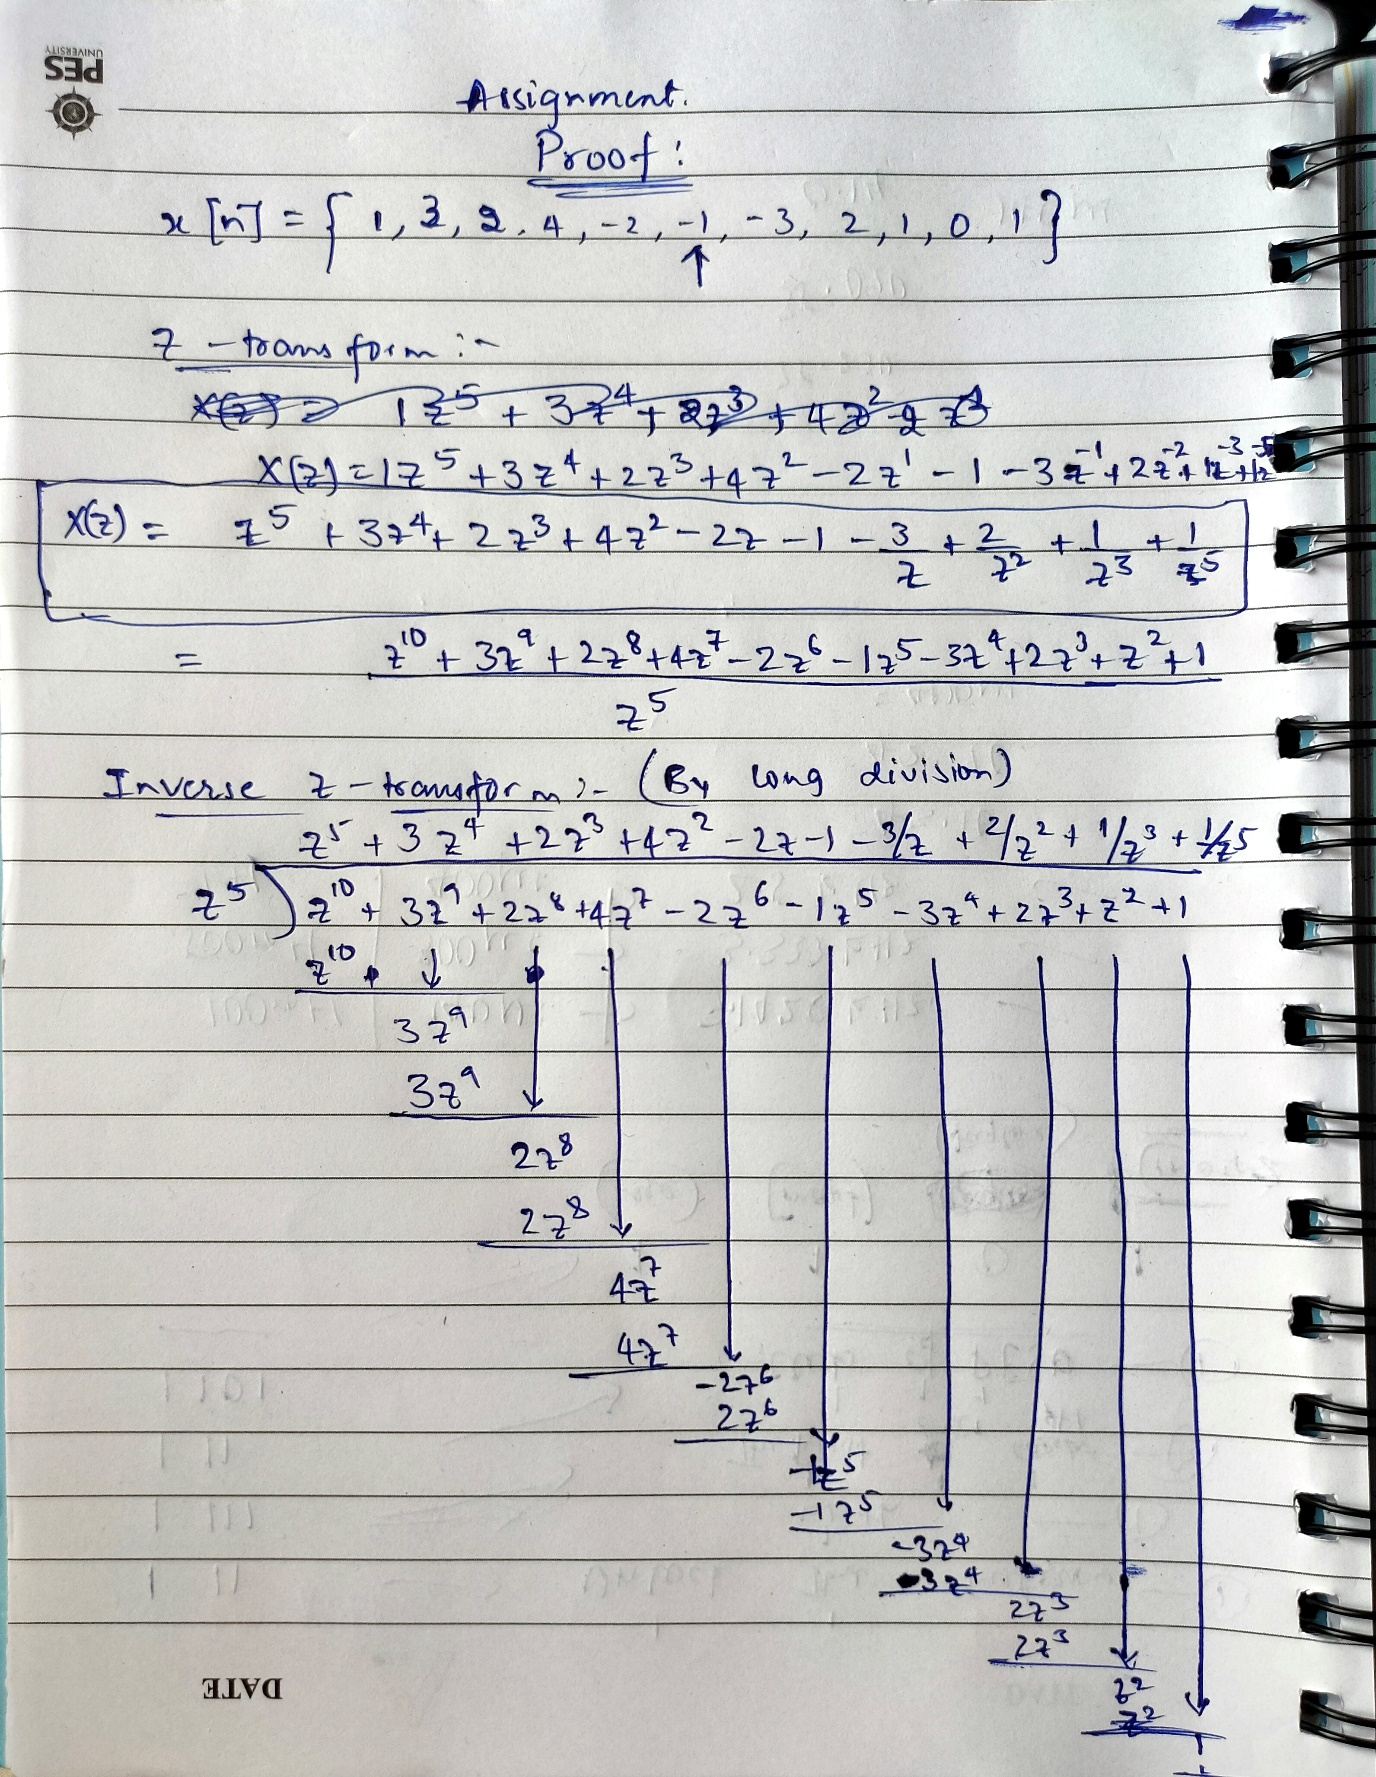 PES
UNIVERSITY
Assignment.
Proof:
x[n] = { 1, 3, 2, 4, -2, -1, -3, 2, 1, 0, 1 }
↑
Z - transform :-
X(z) = 1z⁵ + 3z⁴ + 2z³ + 4z² - 2z¹ - 1 - 3z⁻¹ + 2z⁻² + 1z⁻³ + 1z⁻⁵
X(z) = z⁵ + 3z⁴ + 2z³ + 4z² - 2z - 1 - 3/z + 2/z² + 1/z³ + 1/z⁵
= z¹⁰ + 3z⁹ + 2z⁸ + 4z⁷ - 2z⁶ - 1z⁵ - 3z⁴ + 2z³ + z² + 1
z⁵
Inverse z - transform :- (By long division)
z⁵ + 3z⁴ + 2z³ + 4z² - 2z - 1 - 3/z + 2/z² + 1/z³ + 1/z⁵
z⁵ ) z¹⁰ + 3z⁹ + 2z⁸ + 4z⁷ - 2z⁶ - 1z⁵ - 3z⁴ + 2z³ + z² + 1
z¹⁰
3z⁹
3z⁹
2z⁸
2z⁸
4z⁷
4z⁷
-2z⁶
2z⁶
-1z⁵
-1z⁵
-3z⁴
-3z⁴
2z³
2z³
z²
z²
1
DATE